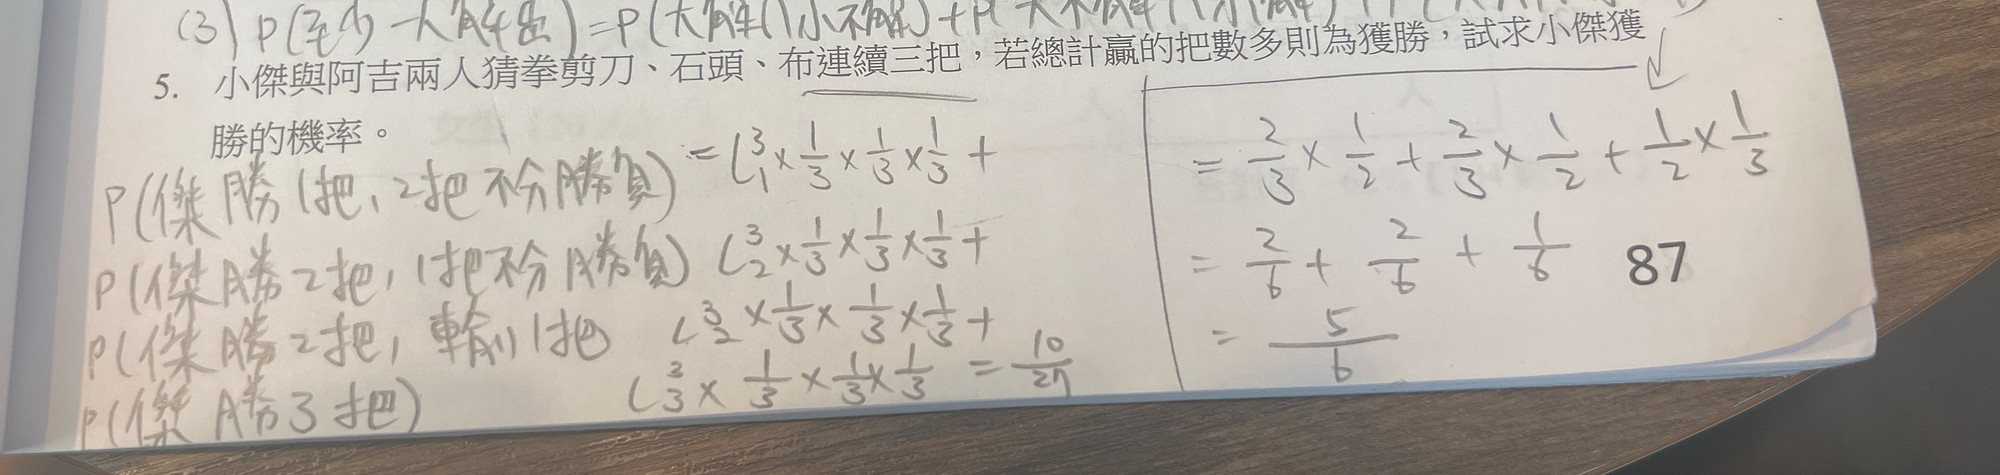 (3) P(至少一人解出)=P(大解∩小不解)+P(大不解∩小解)
5. 小傑與阿吉兩人猜拳剪刀、石頭、布連續三把，若總計贏的把數多則為獲勝，試求小傑獲
勝的機率。
P(傑勝1把,2把不分勝負) = C³₁×1/3×1/3×1/3+
P(傑勝2把,1把不分勝負) C³₂×1/3×1/3×1/3+
P(傑勝2把,輸1把 C³₂×1/3×1/3×1/3+
P(傑勝3把) C³₃×1/3×1/3×1/3 = 10/27
= 2/3×1/2+2/3×1/2+1/2×1/3
= 2/6+2/6+1/6
= 5/6
87